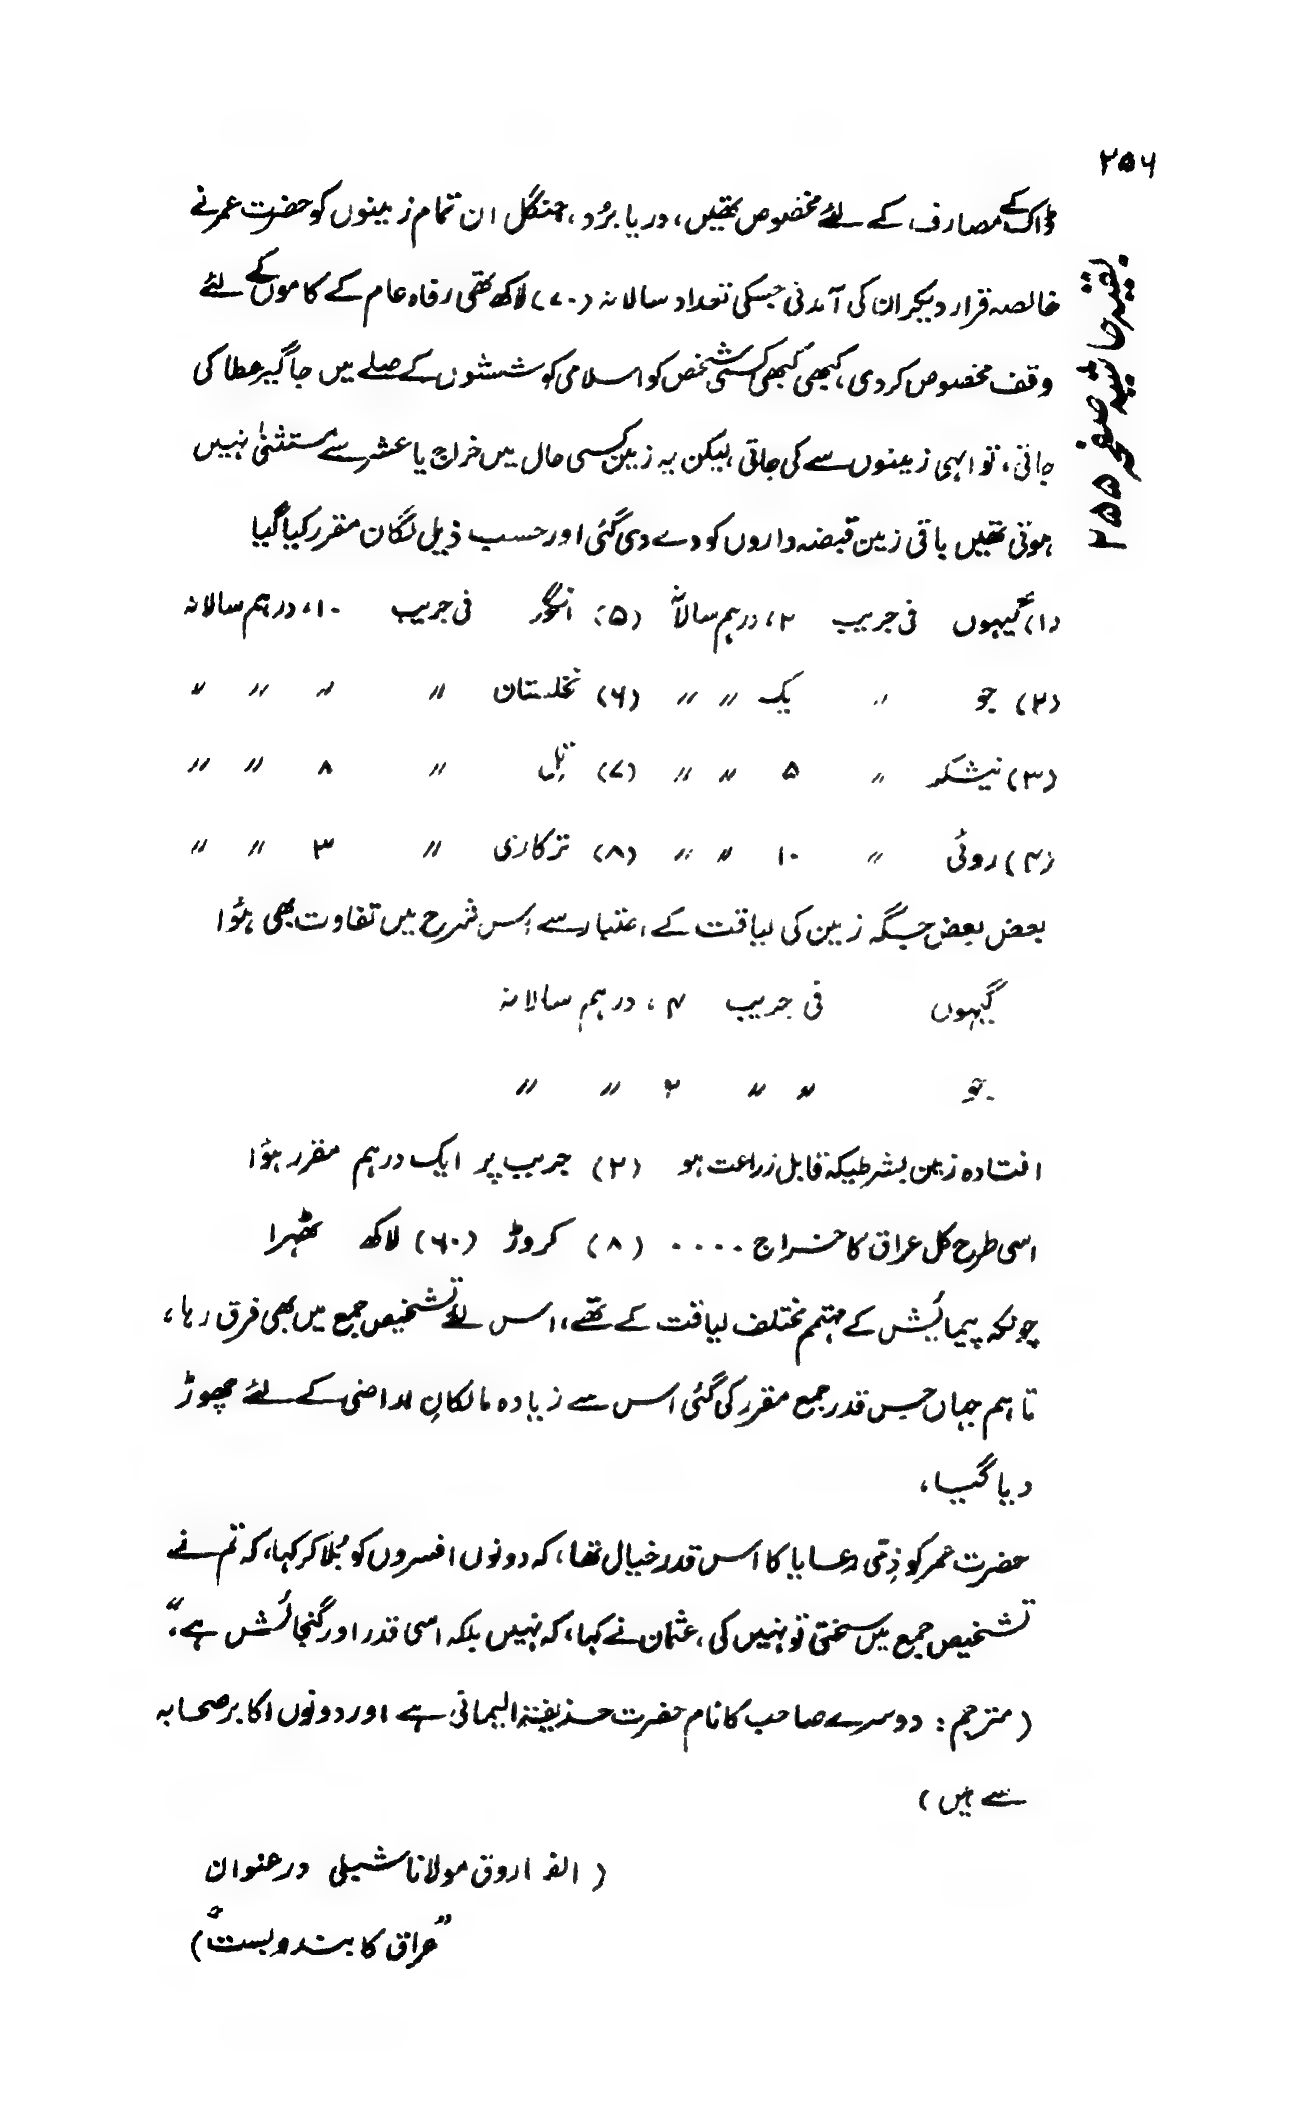 ۲۵۶
بقیہ حاشیہ صفحہ ۲۵۵
ڈاک کے مصارف کے لئے مخصوص تھیں، دریا برُد، جنگل ان تمام زمینوں کو حضرت عمر نے
خالصہ قرار دیکر ان کی آمدنی جسکی تعداد سالانہ (۷۰) لاکھ تھی رفاہ عام کے کاموں کے لئے
وقف مخصوص کر دی، کبھی کبھی کسی شخص کو اسلامی کوششوں کے صلے میں جاگیر عطا کی
جاتی، تو انہی زمینوں سے کی جاتی، لیکن یہ زمین کسی حال میں خراج یا عشر سے مستثنیٰ نہیں
ہوتی تھیں باقی زمین قبضہ داروں کو دے دی گئی اور حسب ذیل لگان مقرر کیا گیا
(۱) گیہوں فی جریب ۲، درہم سالانہ (۵) انگور فی جریب ۱۰، درہم سالانہ
(۲) جو 〃 یک 〃 〃 (۶) نخلستان 〃 〃 〃 〃
(۳) نیشکر 〃 ۵ 〃 〃 (۷) تِل 〃 ۸ 〃 〃
(۴) روئی 〃 ۱۰ 〃 〃 (۸) ترکاری 〃 ۳ 〃 〃
بعض بعض جگہ زمین کی لیاقت کے اعتبار سے اس شرح میں تفاوت بھی ہؤا
گیہوں فی جریب ۴، درہم سالانہ
جو 〃 〃 ۲ 〃 〃
افتادہ زمین بشرطیکہ قابل زراعت ہو (۲) جریب پر ایک درہم مقرر ہؤا
اسی طرح کل عراق کا خراج .... (۸) کروڑ (۶۰) لاکھ ٹھہرا
چونکہ پیمائش کے مہتمم مختلف لیاقت کے تھے، اس لئے تشخیص جمع میں بھی فرق رہا،
تاہم جہاں جس قدر جمع مقرر کی گئی اس سے زیادہ مالکانِ اراضی کے لئے چھوڑ
دیا گیا،
حضرت عمر کو ذِمّی رعایا کا اس قدر خیال تھا، کہ دونوں افسروں کو بُلا کر کہا، کہ تم نے
تشخیص جمع میں سختی تو نہیں کی، عثمان نے کہا، کہ نہیں بلکہ اسی قدر اور گنجائش ہے،"
(مترجم: دوسرے صاحب کا نام حضرت حذیفۃ الیمانی ہے اور دونوں اکابر صحابہ
سے ہیں)
(الفاروق مولانا شبلی در عنوان
"عراق کا بندوبست")